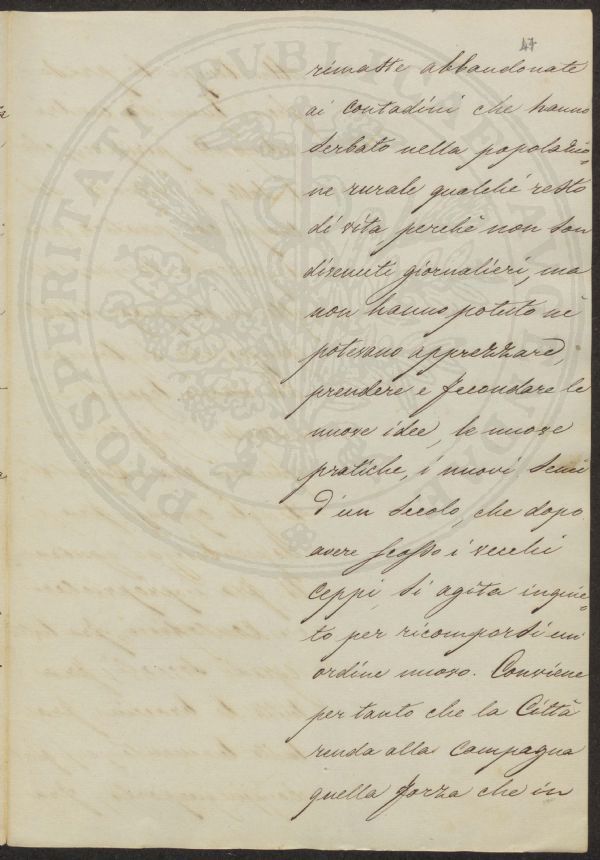 47
rimaste abbandonate
ai contadini che hanno
serbato nella popolazio=
ne rurale qualche resto
di vita perchè non son
divenuti giornalieri, ma
non hanno potuto nè
potevano apprezzare,
prendere e fecondare le
nuove idee, le nuove
pratiche, i nuovi semi
d'un secolo, che dopo
avere scosso i vecchi
ceppi, si agita inquie=
to per ricomporsi un
ordine nuovo. Conviene
per tanto che la Città
renda alla Campagna
quella forza che in
PROSPERITATI PUBLICAE AUGENDAE